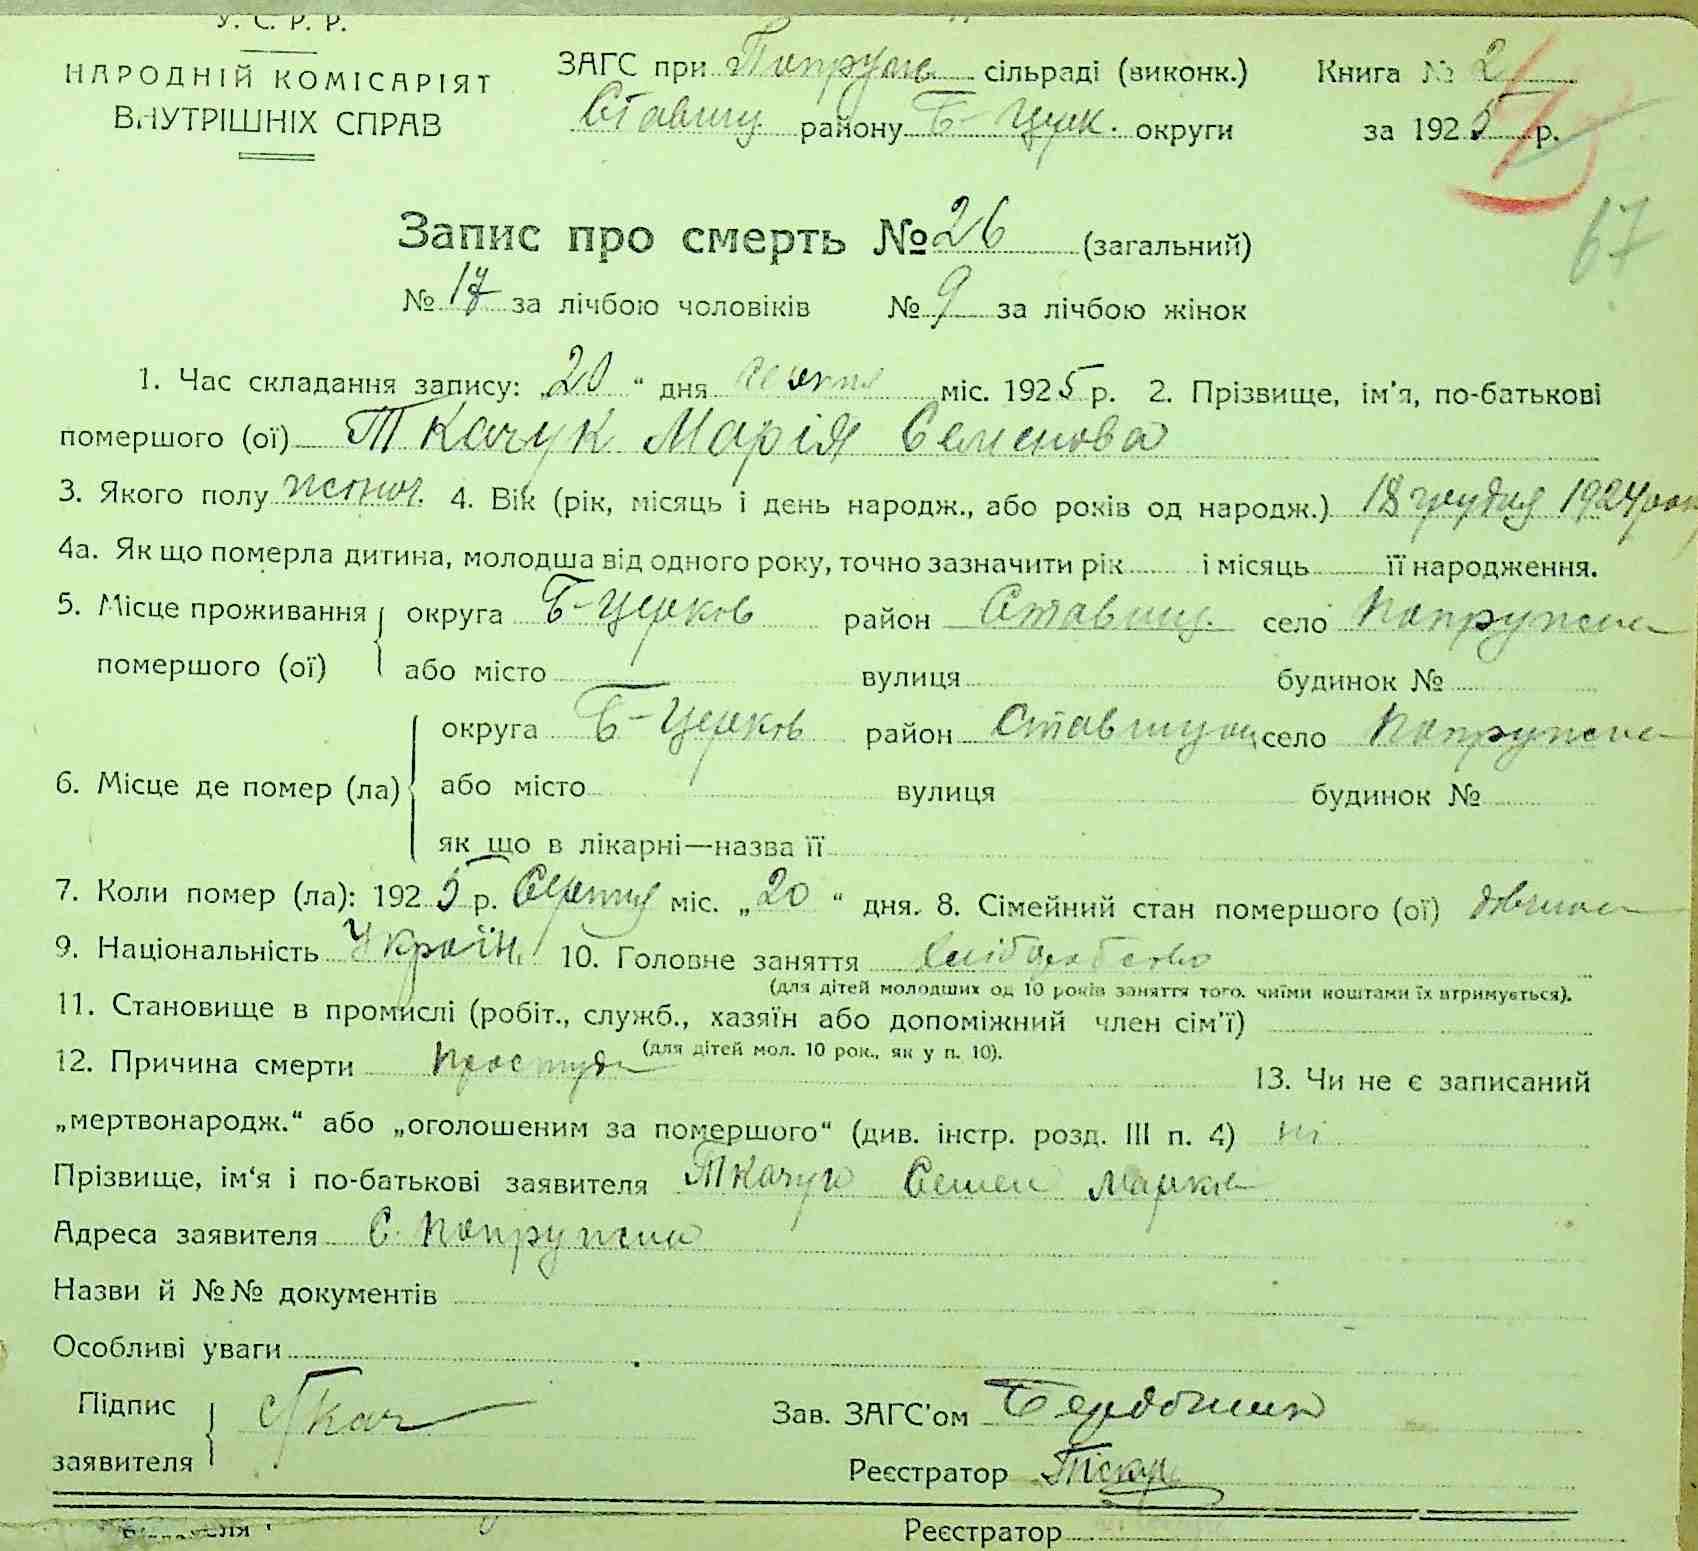 У. С. Р. Р.
НАРОДНІЙ КОМІСАРІЯТ
ВНУТРІШНІХ СПРАВ
ЗАГС при Попруж. сільраді (виконк.) Книга № 2
Ставищ. району Б-Церк. округи за 1925 р.
67
Запис про смерть № 26 (загальний)
№ 17 за лічбою чоловіків № 9 за лічбою жінок
1. Час складання запису: „20“ дня серпня міс. 1925 р. 2. Прізвище, ім'я, по-батькові
помершого (ої) Ткачук Марія Семенова
3. Якого полу жіноч. 4. Вік (рік, місяць і день народж., або років од народж.) 18 грудня 1924 рок
4а. Як що померла дитина, молодша від одного року, точно зазначити рік і місяць її народження.
5. Місце проживання помершого (ої) округа Б-Церков район Ставищ. село Попружна
або місто вулиця будинок №
6. Місце де помер (ла) округа Б-Церков район Ставищац село Попружна
або місто вулиця будинок №
як що в лікарні—назва її
7. Коли помер (ла): 1925 р. Серпня міс. „20“ дня. 8. Сімейний стан помершого (ої)
9. Національність Україн. 10. Головне заняття хліборобство
(для дітей молодших од 10 років заняття того, чиїми коштами їх втримується).
11. Становище в промислі (робіт., служб., хазяїн або допоміжний член сім'ї)
(для дітей мол. 10 рок., як у п. 10).
12. Причина смерти простуда 13. Чи не є записаний
„мертвонародж.“ або „оголошеним за помершого“ (див. інстр. розд. III п. 4) ні
Прізвище, ім'я і по-батькові заявителя Ткачук Семен Марков
Адреса заявителя С. Попружна
Назви й №№ документів
Особливі уваги
Підпис заявителя Ткач Зав. ЗАГС'ом
Реєстратор
Реєстратор